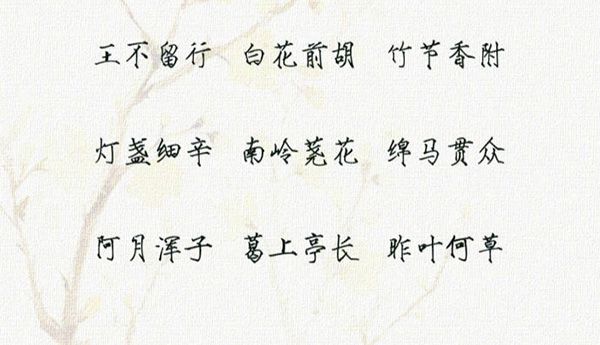 王不留行 白花前胡 竹节香附
灯盏细辛 南岭荛花 绵马贯众
阿月浑子 葛上亭长 昨叶何草